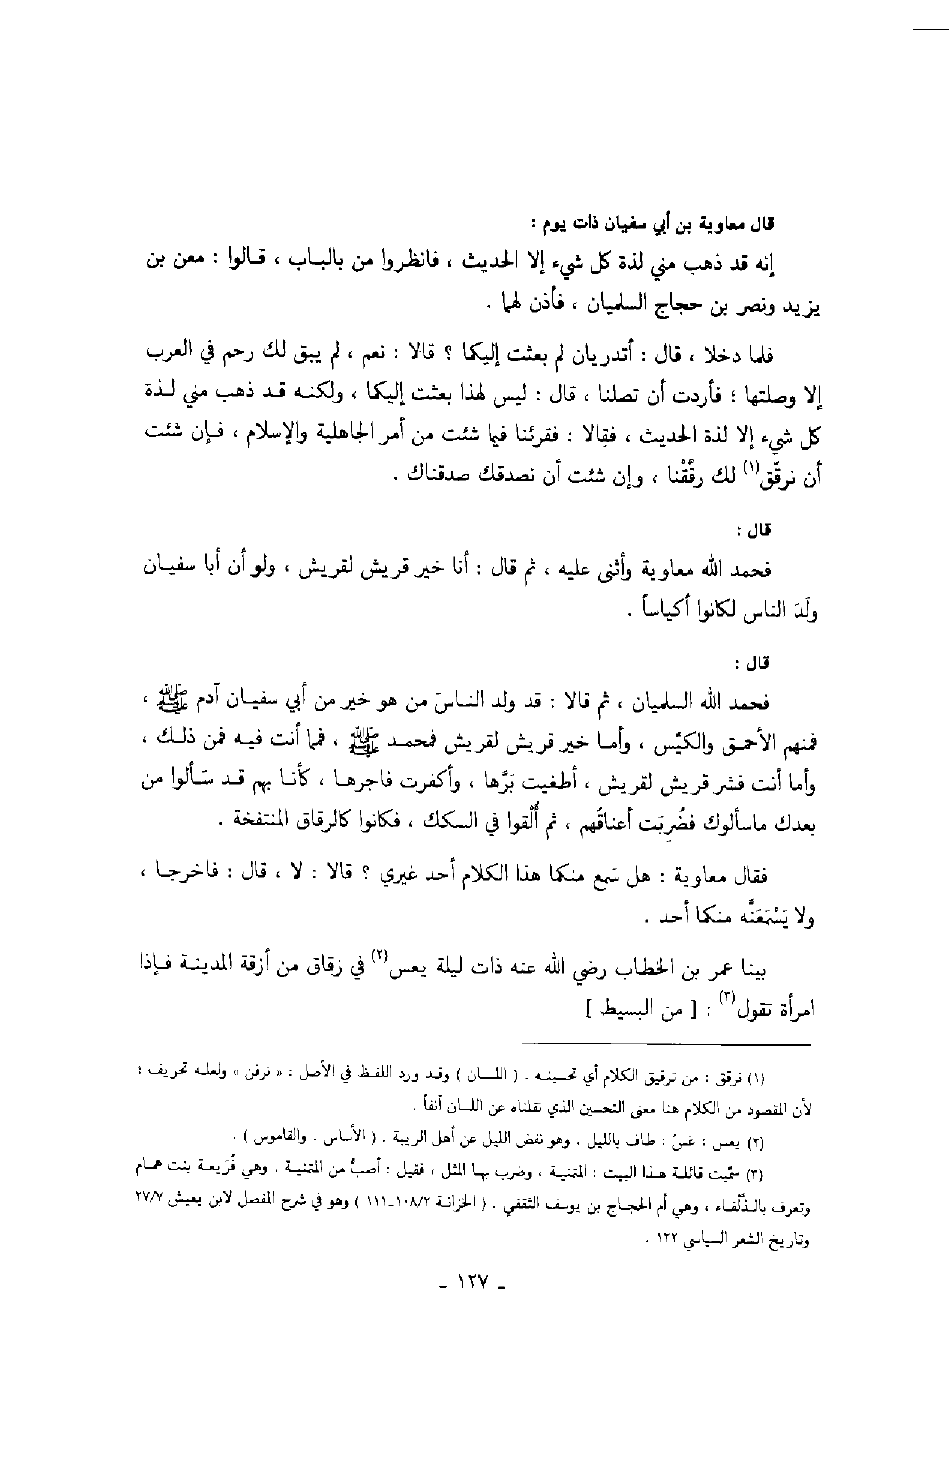 قال معاوية بن أبي سفيان ذات يوم :
إنه قد ذهب مني لذة كل شيء إلا الحديث ، فانظروا من بالباب ، قالوا : معن بن
يزيد ونصر بن حجاج السلميان ، فأذن لهما .
فلما دخلا ، قال : أتدريان لم بعثت إليكما ؟ قالا : نعم ، لم يبق لك رحم في العرب
إلا وصلتها ؛ فأردت أن تصلنا ، قال : ليس لهذا بعثت إليكما ، ولكنه قد ذهب مني لذة
كل شيء إلا لذة الحديث ، فقالا : ففرئنا فيما شئت من أمر الجاهلية والإسلام ، فإن شئت
أن نرقّق(١) لك رقّقْنا ، وإن شئت أن نصدقك صدقناك .
قال :
فحمد الله معاوية وأثنى عليه ، ثم قال : أنا خير قريش لقريش ، ولو أن أبا سفيان
ولَدَ الناس لكانوا أكياساً .
قال :
فحمد الله السلميان ، ثم قالا : قد ولد الناسَ من هو خير من أبي سفيان آدم ﷺ ،
فمنهم الأحمق والكيّس ، وأما خير قريش لقريش فمحمد ﷺ ، فما أنت فيه فمن ذلك ،
وأما أنت فشر قريش لقريش ، أطغيت بَرَّها ، وأكفرت فاجرها ، كأنا بهم قد سألوا من
بعدك ما سألوك فضُرِبَت أعناقُهم ، ثم أُلْقوا في السكك ، فكانوا كالرقاق المنتفخة .
فقال معاوية : هل سمع منكما هذا الكلام أحد غيري ؟ قالا : لا ، قال : فاخرجا ،
ولا يَسْمَعَنَّه منكما أحد .
بينا عمر بن الخطاب رضي الله عنه ذات ليلة يعس(٢) في زقاق من أزقة المدينة فإذا
امرأة تقول(٣) : [ من البسيط ]
(١) نرقق : من ترقيق الكلام أي تحسينه . ( اللسان ) وقد ورد اللفظ في الأصل : « نرفن » ولعله تحريف ؛
لأن المقصود من الكلام هنا معنى التحسين الذي نقلناه عن اللسان آنفاً .
(٢) يعس : عسّ : طاف بالليل . وهو نفض الليل عن أهل الريبة . ( الأساس . والقاموس ) .
(٣) سمّيت قائلة هذا البيت : المتمنية ، وضرب بها المثل ، فقيل : أصبّ من المتمنية . وهي فُرَيعة بنت همام
وتعرف بالذَّلْفاء ، وهي أم الحجاج بن يوسف الثقفي . ( الخزانة ١٠٨/٢ـ١١١ ) وهو في شرح المفصل لابن يعيش ٢٧/٧
وتاريخ الشعر السياسي ١٢٢ .
ـ ١٢٧ ـ